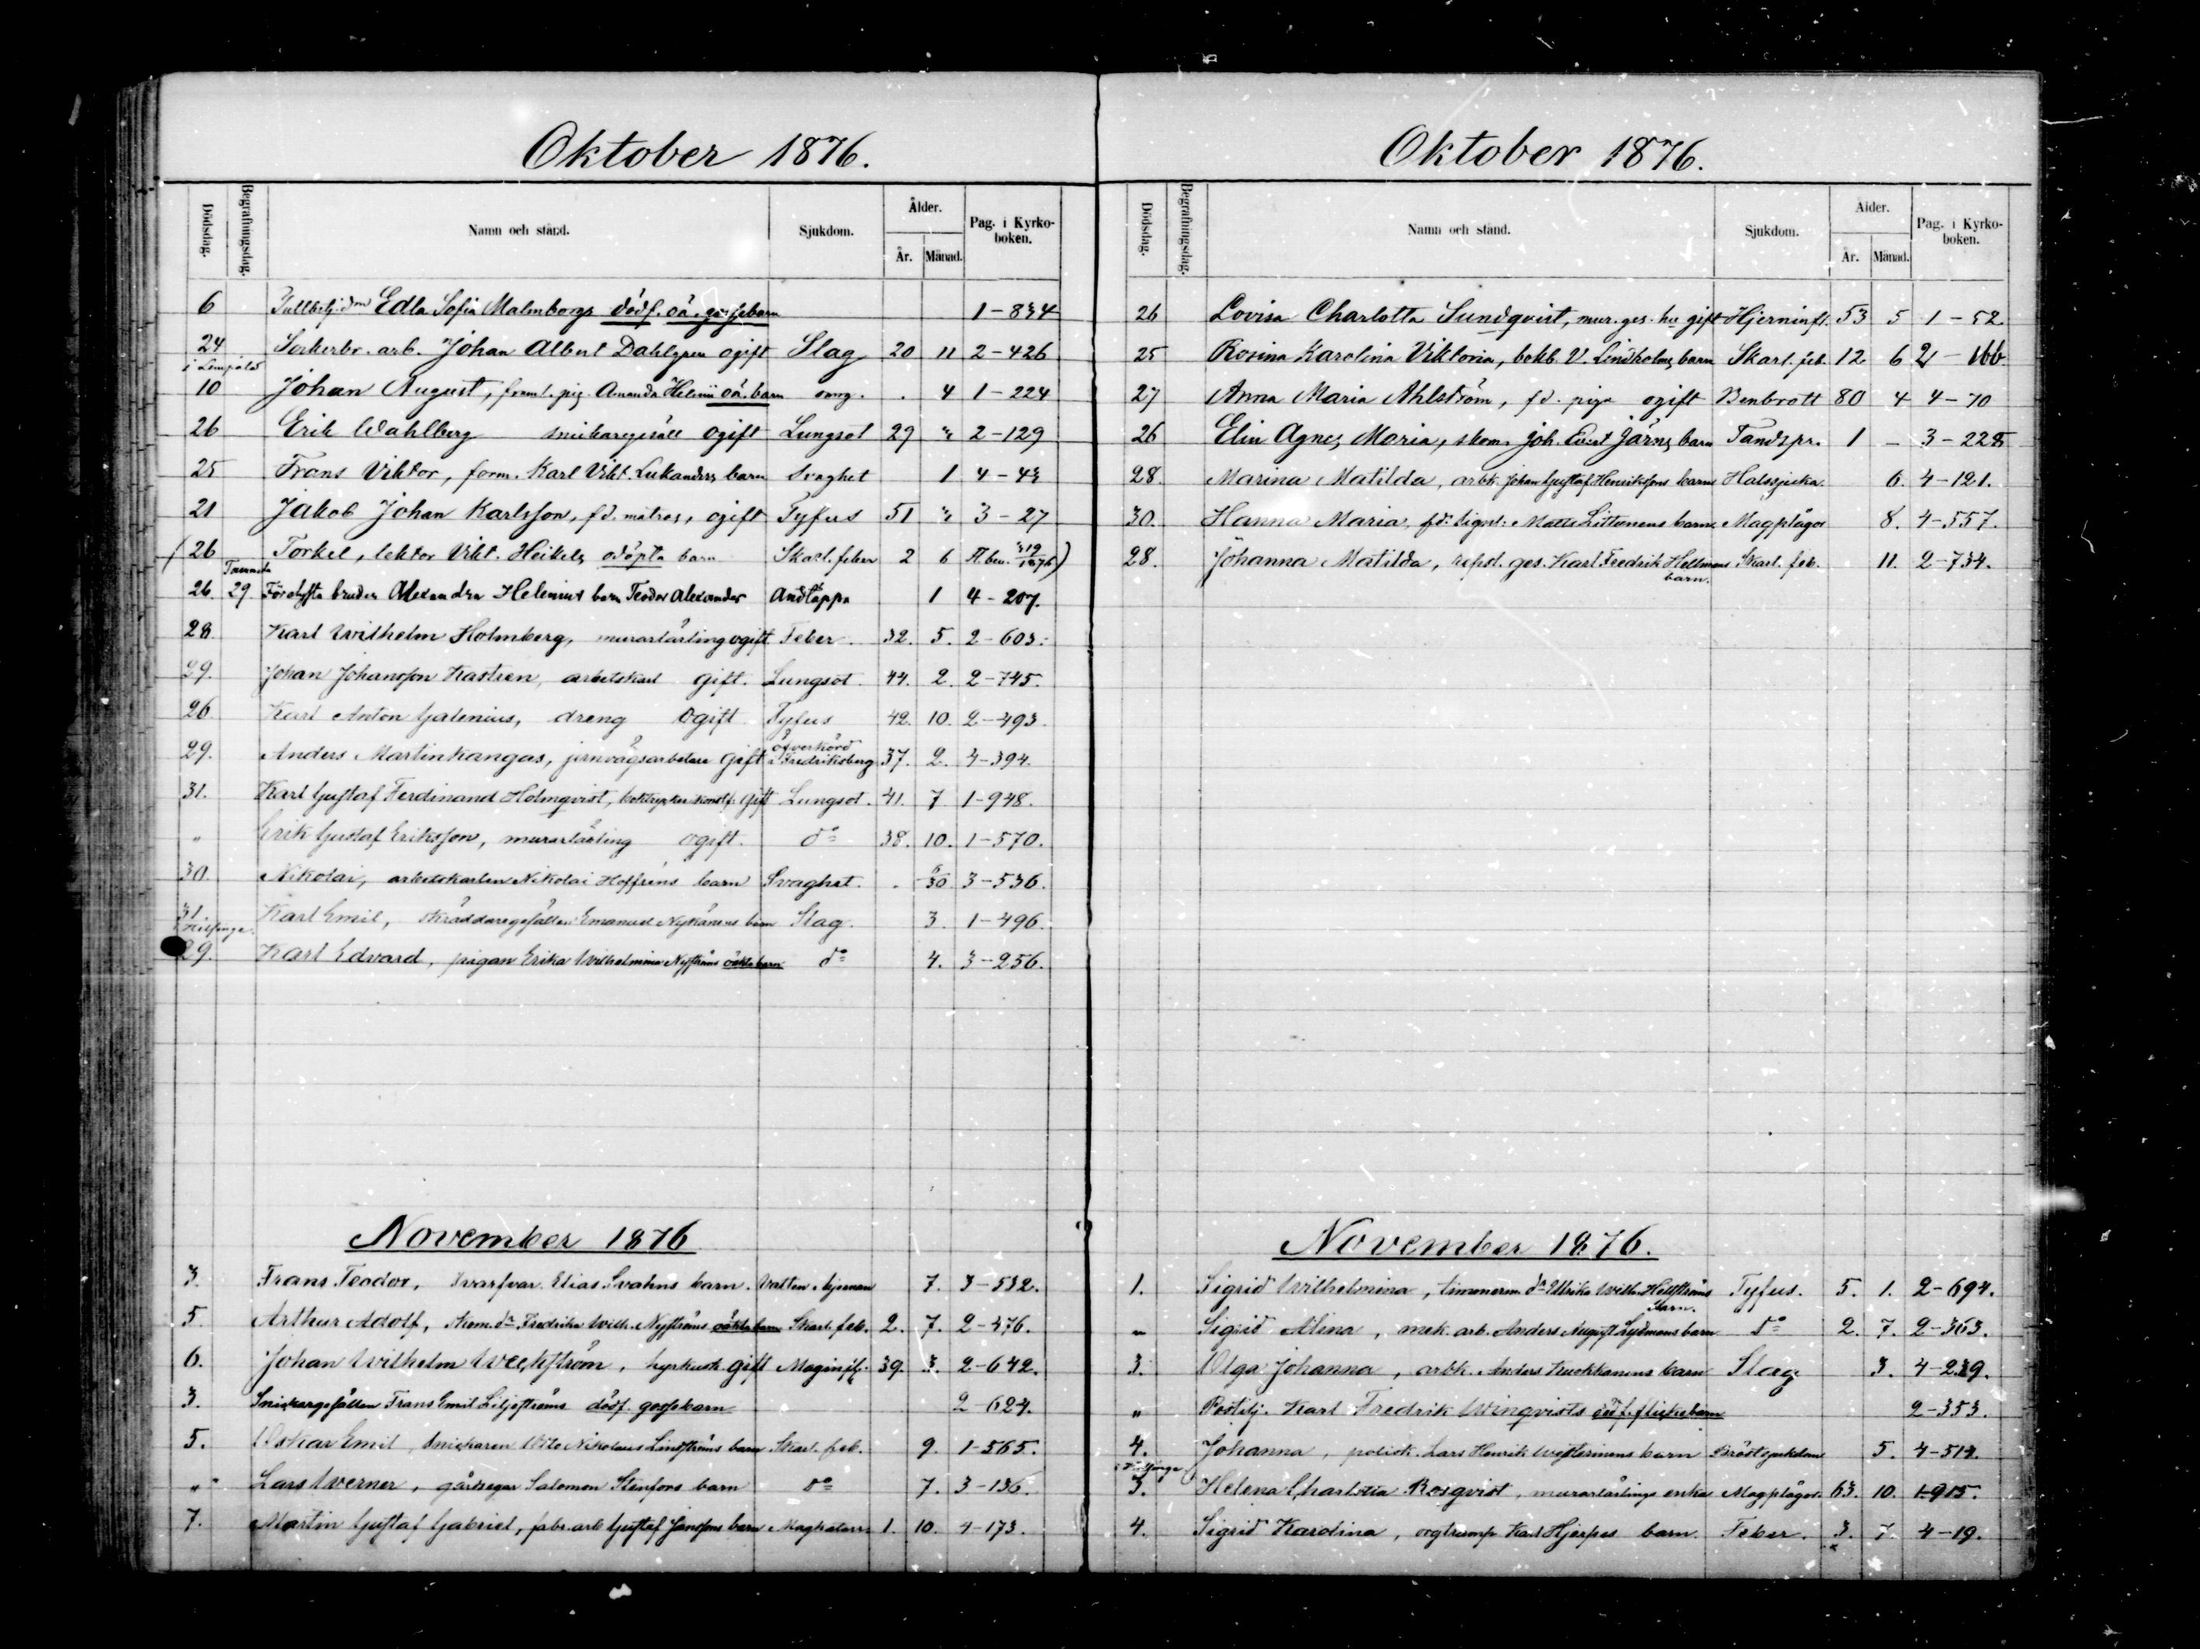 Oktober 1876.
Dödsdag. Begrafningsdag. Namn och stånd. Sjukdom. Ålder. År. Månad. Pag. i Kyrko-boken.
6 Edla Sofia Malmborgs dödf. oä. gossebarn 1-834
24 Sockerbr. arb. Johan Albert Dahlgren ogift Slag 20 11 2-426
10 Johan August, pig. Amanda Helenii oä. barn 4 1-224
26 Erik Wahlberg snickaregesäll ogift Lungsot 29 " 2-129
25 Frans Viktor, form. Karl Vikt. Lukanders barn Svaghet 1 4-43
21 Jakob Johan Karlsson, fd. matros, ogift Tyfus 51 " 3-27
(26 Torkel, lektor Vikt. Heikels odöpta barn Skarl. feber 2 6 319/1876)
26. 29 bruden Alexandra Helenius barn Teodor Alexander Andtäppa 1 4-207.
28. Karl Wilhelm Holmberg, murarlärling ogift Feber. 32. 5. 2-603.
29. Johan Johansson Kastren, arbetskarl gift. Lungsot. 44. 2. 2-745.
26 Karl Anton Galenius, dreng ogift Tyfus 42. 10. 2-493.
29. Anders Martinkangas, jernvägsarbetare gift öfverkörd i Fredriksberg 37. 2. 4-394.
31. Karl Gustaf Ferdinand Holmqvist, gift Lungsot. 41. 7 1-948.
" Erik Gustaf Eriksson, murarlärling ogift. do 38. 10. 1-570.
30. Nikolai, arbetskarlen Nikolai Hoffréns barn Svaghet. 3-536.
31. Karl Emil, skräddaregesällen Emanuel Nykänens barn Slag. 3. 1-496.
29. Karl Edvard, pigan Erika Wilhelmina Nyströms oäkta barn do 4. 3-256.
November 1876
3. Frans Teodor, Svarfvar. Elias Svahns barn. Vatten i hjernan 7. 3-532.
5. Arthur Adolf, Fredrika Wilh. Nyströms oäkta barn Skarl. feb. 2. 7. 2-476.
6. Johan Wilhelm Weckström, hyrkusk gift Maginfl. 39. 3. 2-642.
3. Snickargesällen Frans Emil Liljeströms dödf. gossebarn 2 624.
5. Oskar Emil, Snickaren Nikolaus Lindströms barn Skarl. feb. 9. 1-565.
" Lars Werner, gårdsegar Salomon Stenfors barn do 7. 3-136.
7. Martin Gustaf Gabriel, fabr. arb. Gustaf Janssons barn Magkatarr 1. 10. 4-173.
Oktober 1876.
Dödsdag. Begrafningsdag. Namn och stånd. Sjukdom. Ålder. År. Månad. Pag. i Kyrko-boken.
26 Lovisa Charlotta Sundqvist, mur. ges. hu gift Hjerninfl. 53 5 1-52
25 Rosina Karolina Viktoria, bokb. V. Lindholms barn Skarl. feb. 12 6 2-166
27 Anna Maria Ahlström, fd. piga ogift Benbrott 80 4 4-70
26 Elin Agnes Maria, skom. Joh. Järns barn Tandspr. 1 - 3-228
28. Marina Matilda, arbk. Johan Gustaf Henrikssons barn Halssjuka. 6. 4-121.
30. Hanna Maria, Matts Littunens barn. Magplågor 8. 4-557.
28. Johanna Matilda, repsl. ges. Karl Fredrik Hellmans barn. Skarl. feb. 11. 2-734.
November 1876.
1. Sigrid Wilhelmina, timmerm. dr Ulrika Wilh. Hellströms barn. Tyfus. 5. 1. 2-694.
" Sigrid Alina, mek. arb. Anders August Lydmans barn do 2. 7. 2-363.
3. Olga Johanna, arbk. Anders Kuokkanens barn Slag 3. 4-239.
" Postilj. Karl Fredrik Wingvists dödf. flickebarn 2-353.
4. Johanna, polisk. Lars Henrik Westerinens barn Bröstsjukdom 5. 4-514.
3. Helena Charlotta Bosqvist, murarlärlings enka Magplågor. 63. 10. 1-915.
4. Sigrid Karolina, Karl Hjerpes barn. Feber. 3. 7. 4-19.